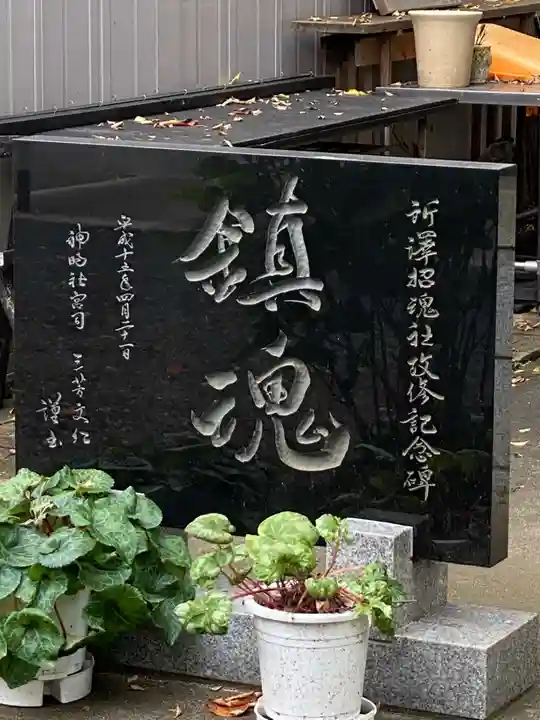 所澤招魂社改修記念碑
鎮魂
平成十五年四月二十一日
神明社宮司 三芳文仁
謹書